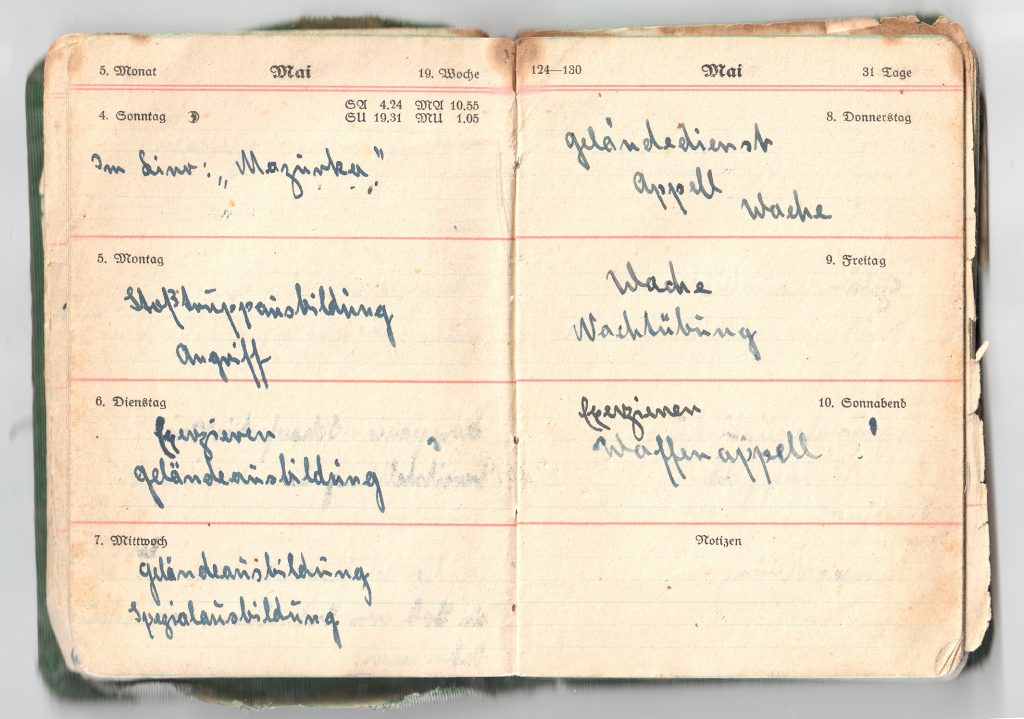 5. Monat Mai 19. Woche
4. Sonntag SA 4,24 MA 10,55
SU 19,31 MU 1.05
Im Kino: „Mazurka"
5. Montag
Stoßtruppausbildung
Angriff
6. Dienstag
Exerzieren
Geländeausbildung
7. Mittwoch
Geländeausbildung
Spezialausbildung
124—130 Mai 31 Tage
8. Donnerstag
Geländedienst
Appell
Wache
9. Freitag
Wache
Nachtübung
10. Sonnabend
Exerzieren
Waffenappell !
Notizen